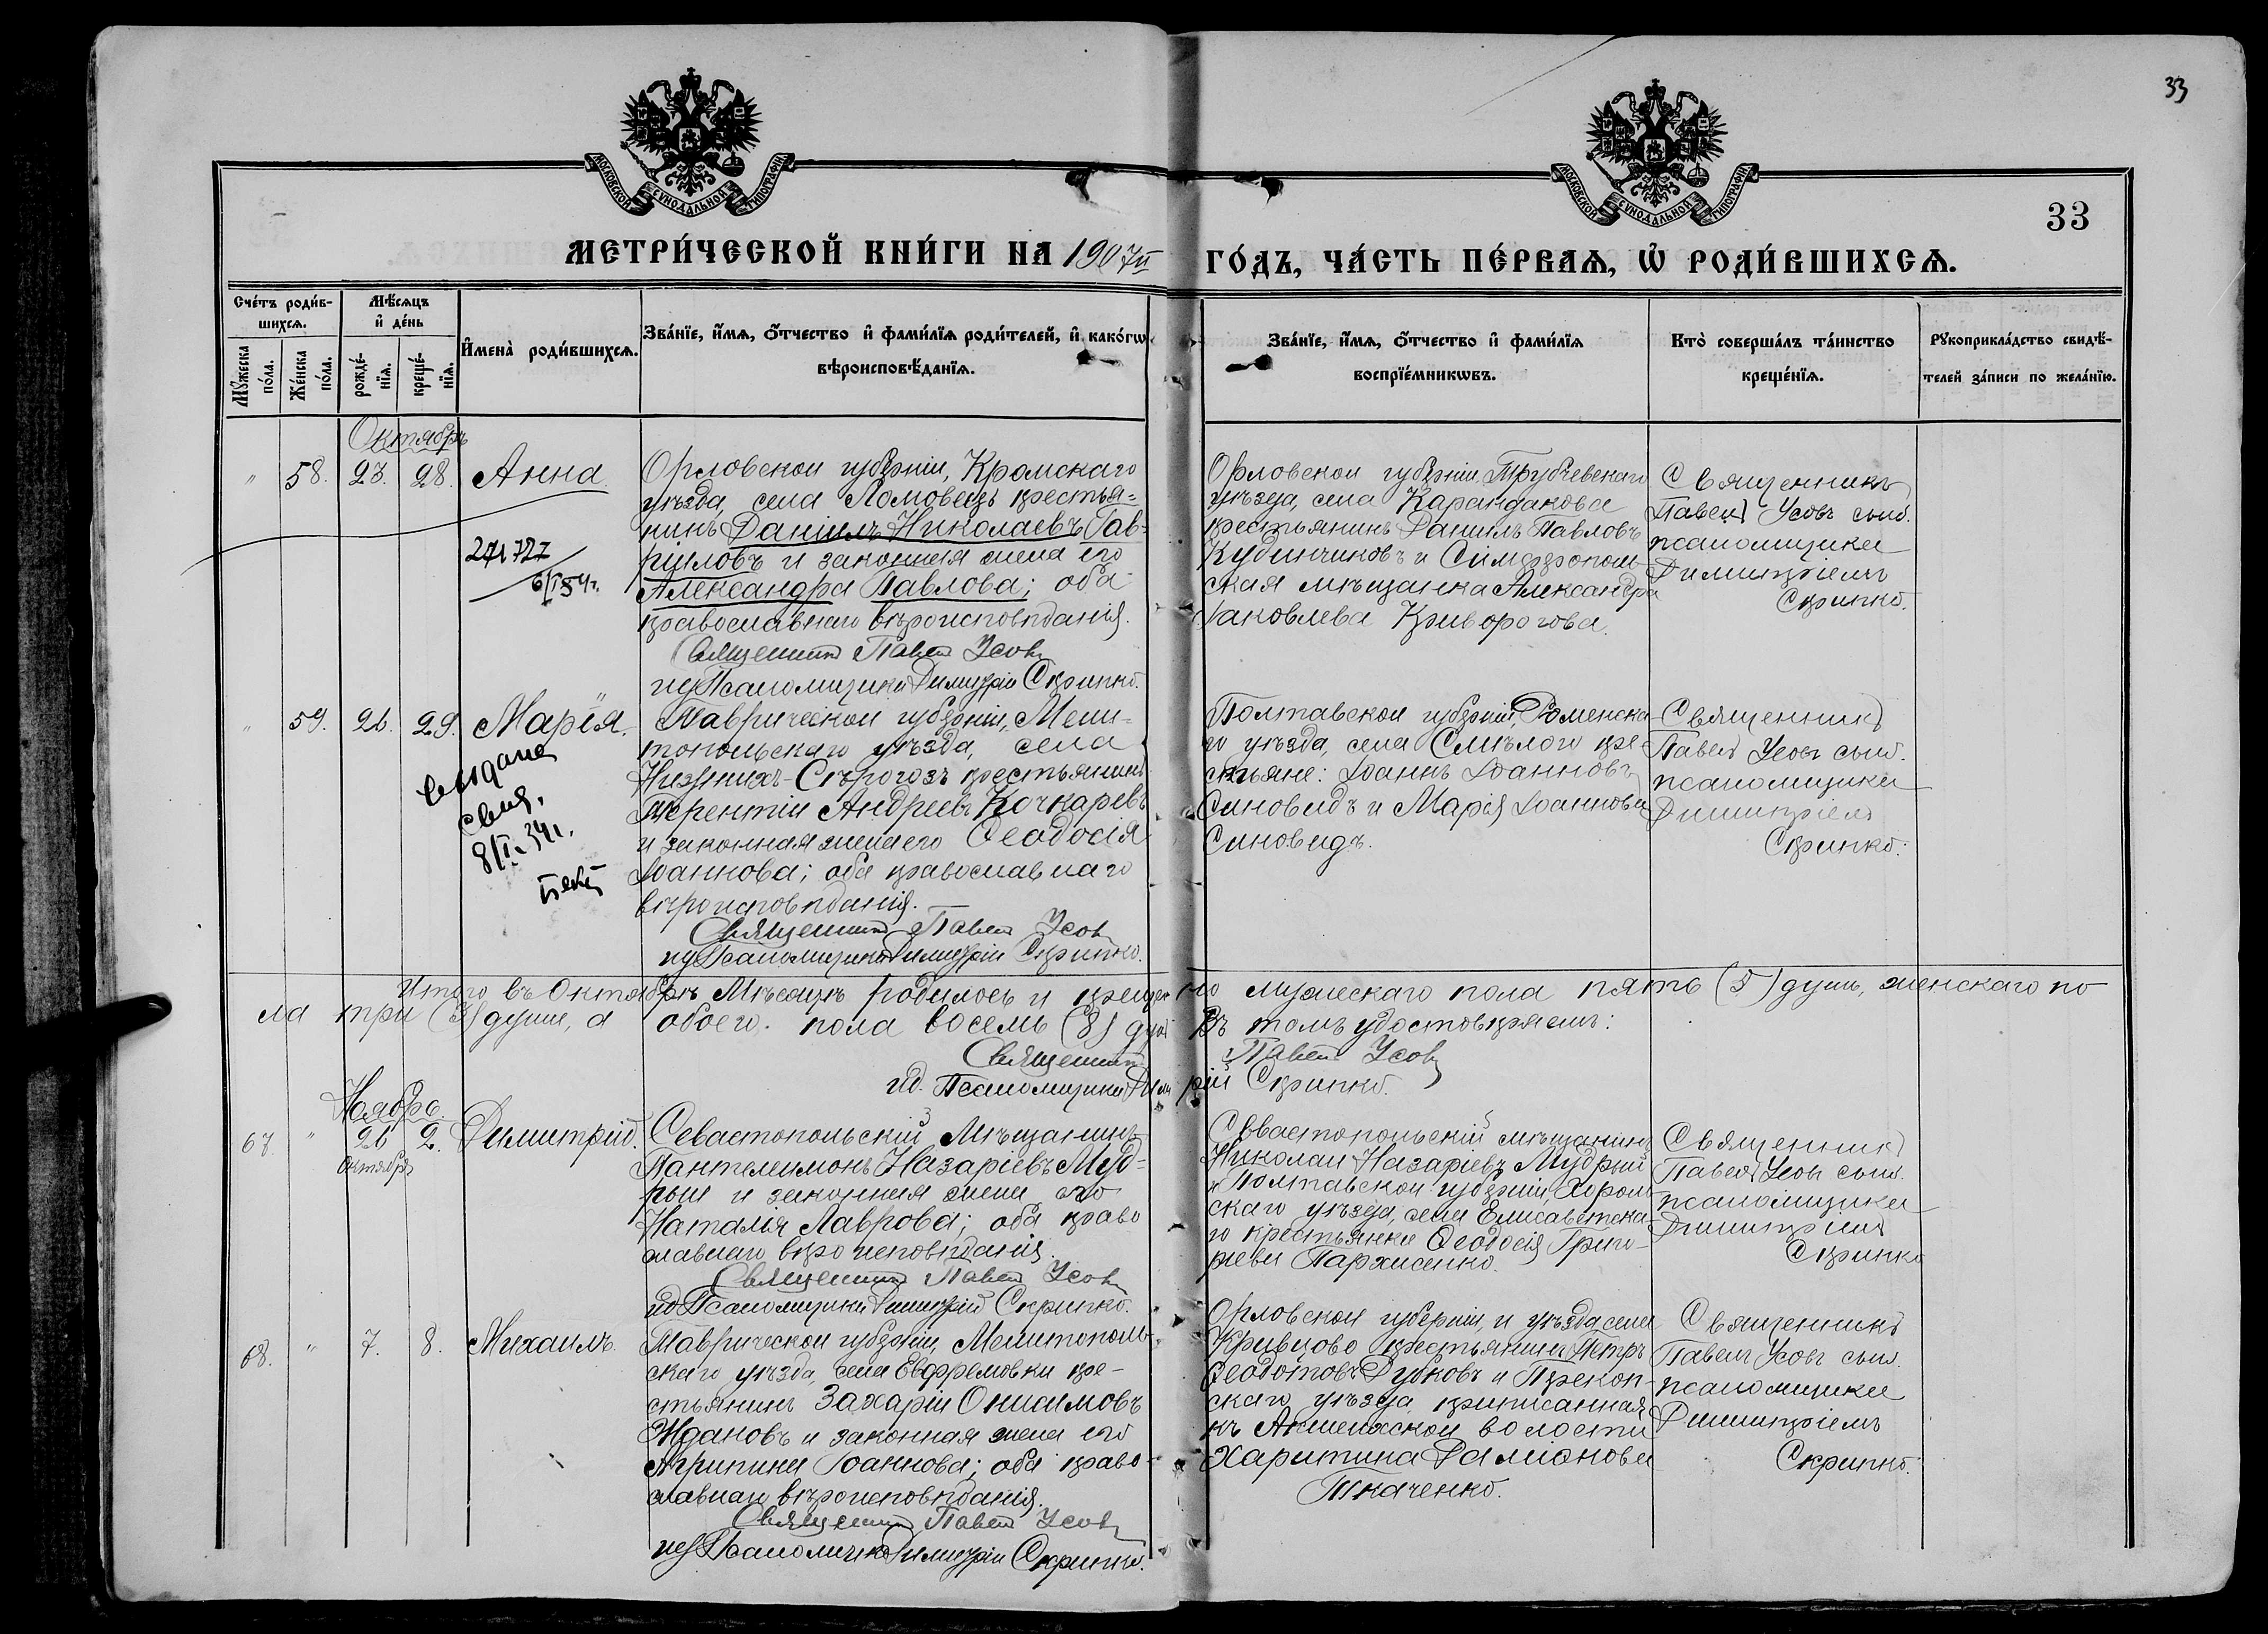 33
МОСКОВСКОЙ СѴНОДАЛЬНОЙ ТИПОГРАФІИ
МОСКОВСКОЙ СѴНОДАЛЬНОЙ ТИПОГРАФІИ
33
МЕТРИ́ЧЕСКОЙ КНИ́ГИ НА 1907й ГО́ДЪ, ЧА́СТЬ ПЕ́РВАѦ, Ѡ҆ РОДИ́ВШИХСѦ.
Сче́тъ роди́в-
шихсѧ.
Мꙋ́жеска по́ла.
Же́нска по́ла.
Мѣ́сѧцъ
и҆ де́нь
рожде́-
нїѧ.
креще́-
нїѧ.
И҆мена̀ роди́вшихсѧ.
Зва́нїе, и҆́мѧ, ѻ҆́тчество и҆ фами́лїѧ роди́телей, и҆ како́гѡ
вѣроисповѣ́данїѧ.
Зва́нїе, и҆́мѧ, ѻ҆́тчество и҆ фами́лїѧ
воспрїе́мникѡвъ.
Кто̀ соверша́лъ та́инство
креще́нїѧ.
Рꙋкоприкла́дство свидѣ́-
телей за́писи по жела́нїю.
Октябрь
" 58. 23. 28. Анна.
271727
6/I 54г.
Орловской губерніи, Кромскаго
уѣзда, села Ломовецъ крестья=
нинъ Даніилъ Николаевъ Гав=
риловъ и законная жена его
Александра Павлова; оба
православнаго вѣроисповѣданія.
Священникъ Павелъ Усовъ
ид Псаломщика Димитрій Скрипко.
Орловской губерніи, Трубчевскаго
уѣзда, села Карандакова
крестьянинъ Даніилъ Павловъ
Кубынчиковъ и Симферополь-
ская мѣщанка Александра
Іаковлева Криворогова.
Священникъ
Павелъ Усовъ съ ид.
псаломщика
Димитріемъ
Скрипко.
" 59. 26. 29. Марія.
выдана
свид.
8/I 34г.
Таврической губерніи, Мели-
топольскаго уѣзда, села
Нижнихъ-Сѣрогозъ крестьянинъ
Терентій Андреевъ Кочкаревъ
и законная жена его Ѳеодосія
Іоаннова; оба православнаго
вѣроисповѣданія.
Священникъ Павелъ Усовъ
ид Псаломщика Димитрій Скрипко.
Полтавской губерніи, Роменска-
го уѣзда, села Смѣлого кре-
стьяне: Іоаннъ Іоанновъ
Синовидъ и Марія Іоаннова
Синовидъ.
Священникъ
Павелъ Усовъ съ ид.
псаломщика
Димитріемъ
Скрипко.
Итого въ Октябрѣ Мѣсяцѣ родилось и крещено мужескаго пола пять (5) душъ, женскаго по
ла три (3) души, а обоего пола восемь (8) душъ Въ томъ удостовѣряемъ:
Священникъ Павелъ Усовъ
ид. Псаломщика Димитрій Скрипко.
Ноябрь.
67. " 26 Октября 2. Димитрій.
Севастопольскій Мѣщанинъ
Пантелеимонъ Назаріевъ Муд=
рый и законная жена его
Наталія Лаврова; оба право
славнаго вѣроисповѣданія.
Священникъ Павелъ Усовъ
ид Псаломщика Димитрій Скрипко.
Севастопольскій мѣщанинъ
Николай Назаріевъ Мудрый
и Полтавской губерніи, Хороль-
скаго уѣзда, села Елисаветска-
го крестьянка Ѳеодосія Григо-
риева Пархоменко.
Священникъ
Павелъ Усовъ съ ид.
псаломщика
Димитріемъ
Скрипко
68. " 7. 8. Михаилъ.
Таврической губерніи, Мелитополь-
скаго уѣзда, села Ефремовки кре-
стьянинъ Захарій Онисимовъ
Ждановъ и законная жена его
Агрипина Іоаннова; оба право-
славнаго вѣроисповѣданія.
Священникъ Павелъ Усовъ
ид Псаломщика Димитрій Скрипко.
Орловской губерніи, и уѣзда села
Кривцово крестьянинъ Петръ
Ѳеодотовъ Дубковъ и Перекоп-
скаго уѣзда, приписанная
къ Акшеихской волости
Харитина Даміанова
Ткаченко.
Священникъ
Павелъ Усовъ съ ид.
псаломщика
Димитріемъ
Скрипко.